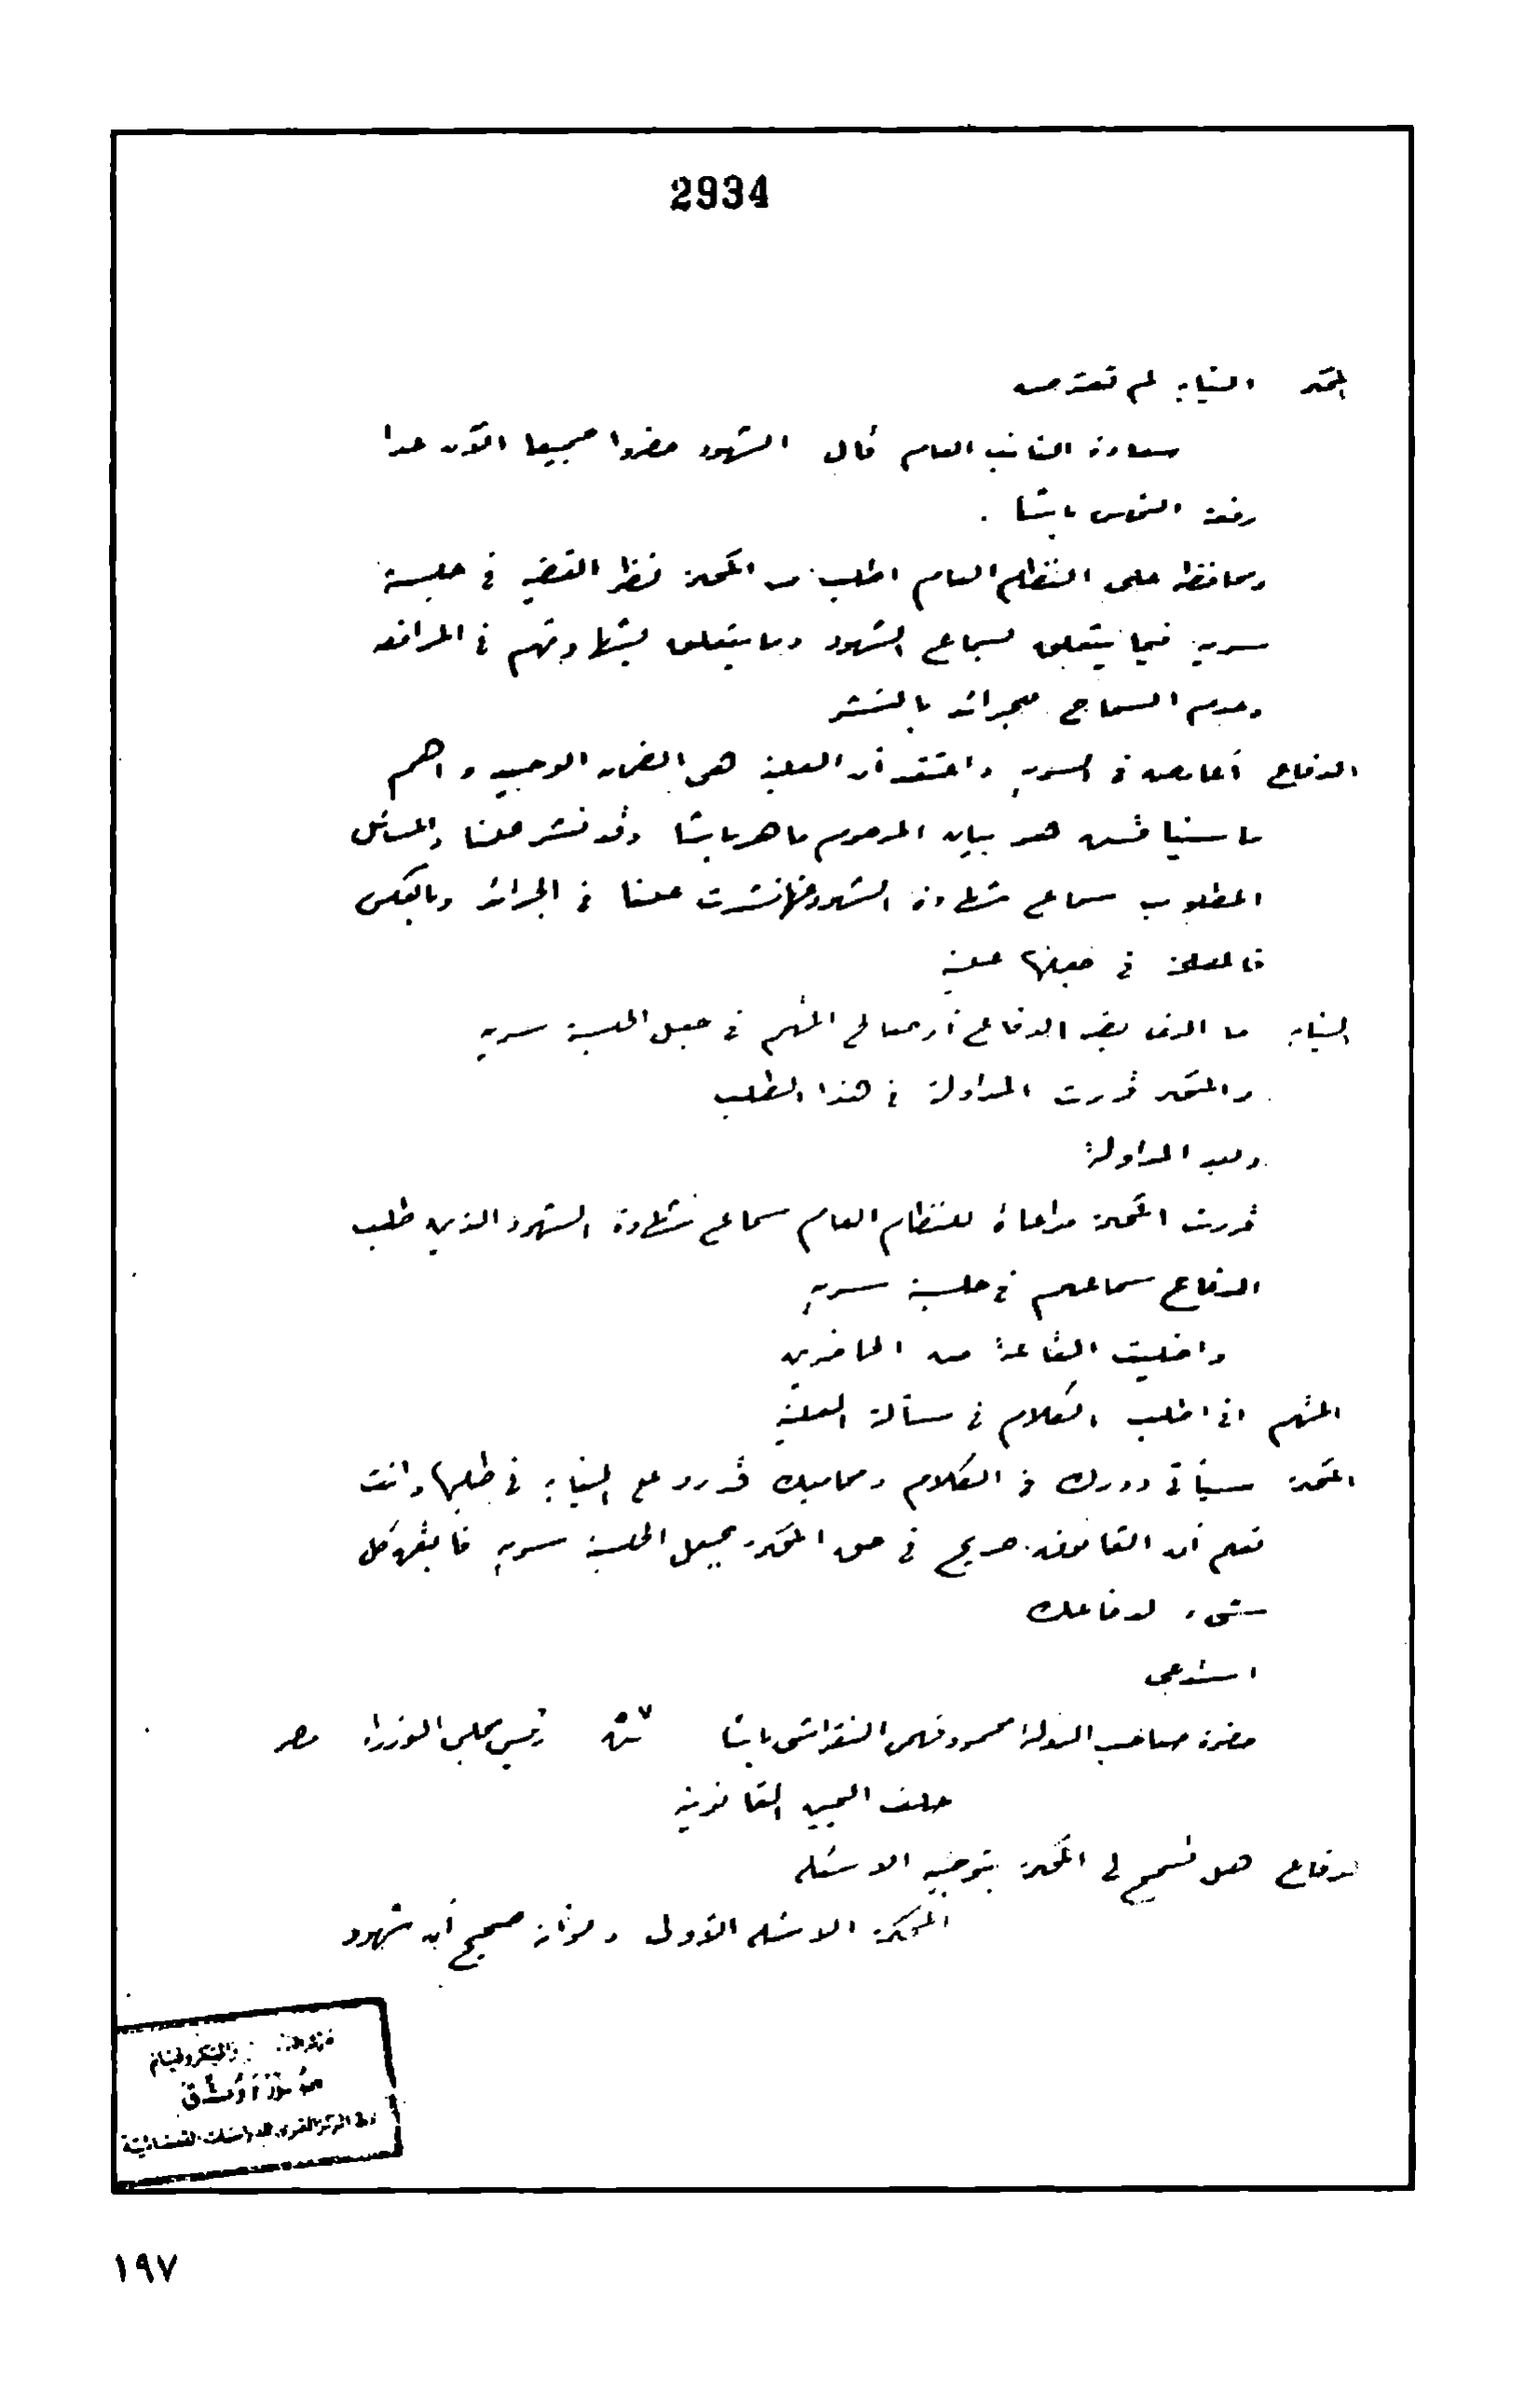 2934
المحكمة النيابة لم تعترض
سعادة النائب العام قال الشهود حضروا جميعا الآن عدا
رفعة النحاس باشا .
ومحافظة على النظام العام اطلب من المحكمة نظر القضية في جلسة
سرية فيما يتعلق بسماع الشهود وما يتعلق بشهادتهم في المرافعة
وعدم السماح للجرائد بالنشر
الدفاع أعارض في السرية واعتقد أن العلنية هي الضمان الوحيد وأهم
ما سيناقش هو بيان المرحوم ماهر باشا وقد نشر علنا والمسائل
المطلوب سماع شهادة الشهود عنها نشرت علنا في الجرائد وبالعكس
فالمصلحة في جعلها علنية
النيابة ما الذي يضر الدفاع أو صالح المتهم في جعل الجلسة سرية
والمحكمة قررت المداولة في هذا الطلب
وبعد المداولة
قررت المحكمة مراعاة للنظام العام سماع شهادة الشهود الذين طلب
الدفاع سماعهم في جلسة سرية
واخليت القاعة من الحاضرين
المتهم اني اطلب الكلام في مسألة العلنية
المحكمة سيأتي دورك في الكلام ومحاميك قد رد على النيابة في طلبها وانت
تعلم أن القانون صريح في حق المحكمة بجعل الجلسة سرية فابق كل
شيء لدفاعك
استدعى
حضرة صاحب الدولة محمود فهمي النقراشي باشا ٥٧ سنة رئيس مجلس الوزراء مصر
حلف اليمين القانونية
الدفاع هل تسمح لي المحكمة بتوجيه الاسئلة
المحكمة الاسئلة الأولى صحيح أن شهود
والميكروفيلم
للدراسات القضائية
١٩٧